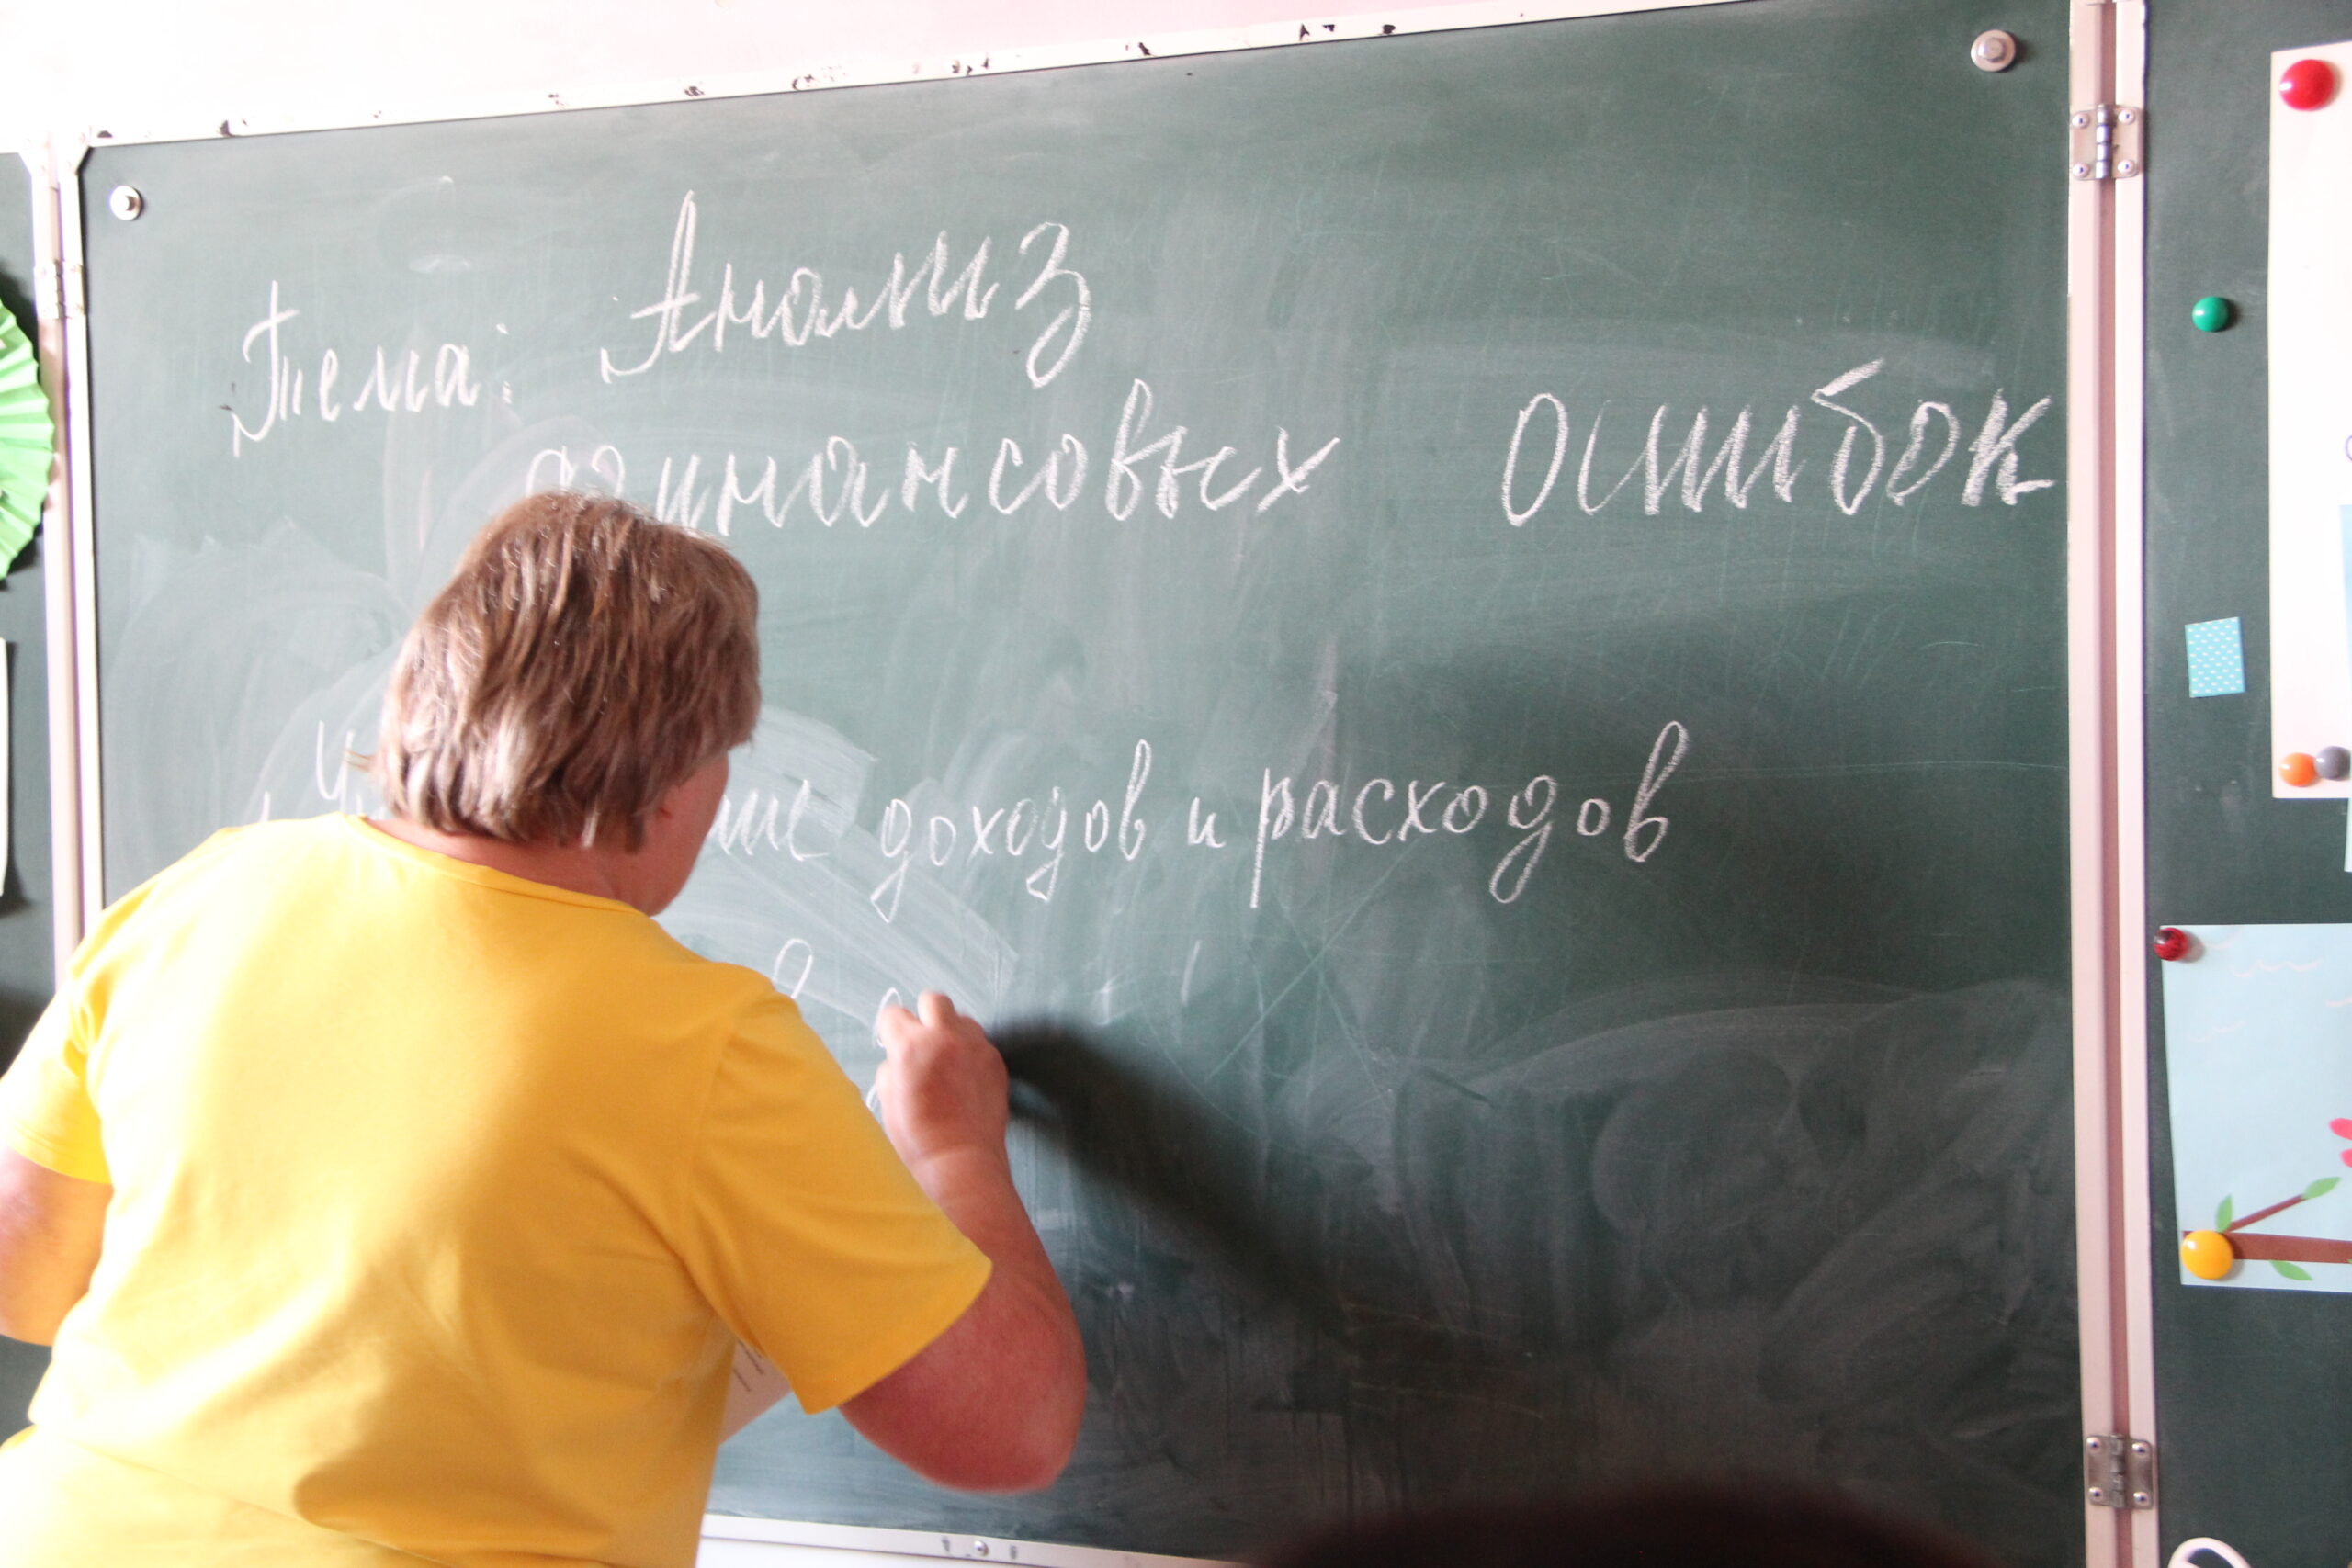 Тема: Анализ
финансовых ошибок
доходов и расходов